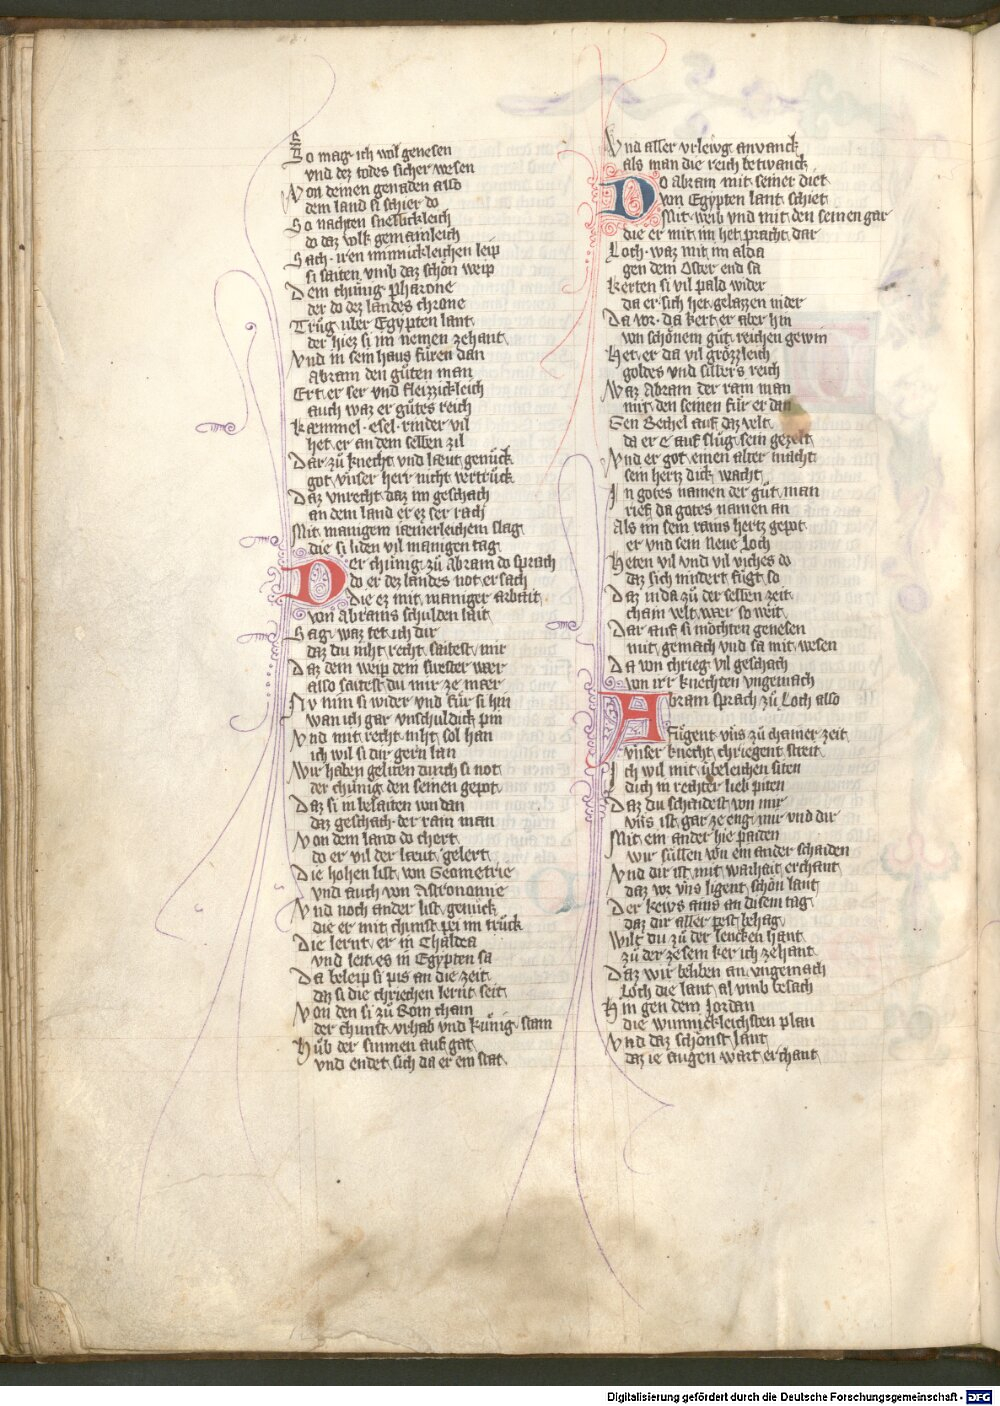 So mag ich wol genesen
vnd dez todes sicher wesen
Von deinen genaden also
dem land si schier do
So nachten snellickleich
do daz volk gemainleich
Sach iren minnickleichen leip
si saiten vmb daz schön weip
Dem chünig pharone
der do dez landes chrone
Trüg vber Egypten lant
der hiez si im nemen zehant
Vnd in sein haus füren dan
abram den güten man
Ert er ser vnd fleizzickleich
auch waz er gütes reich
Kæmmel esel rinder vil
het er an dem selben zil
Dar zü knecht vnd læut genück
got vnser herr nicht vertrück
Daz vnrecht daz im geschach
an dem land er ez ser rach
Mit manigem iæmerleichem slag
die si liden vil manigen tag
Der chünig zü Abram do sprach
do er dez landes not ersach
Die ez mit maniger arbait
von Abrams schulden lait
Sag waz tet ich dir
daz du niht recht saitest mir
Daz dem weip dein swester wær
also saitest du mir ze mær
Nv nim si wider vnd für si hin
wan ich gar vnschuldick pin
Vnd mit recht niht sol han
ich wil si dir gern lan
Wir haben geliten durch si not
der chünig den seinen gepot
Daz si in belaiten von dan
daz geschach der rain man
Von dem land do chert
do er vil der læut gelert
Die hohen list von Geometrie
vnd auch von Astronomie
Vnd noch ander list genück
die er mit chunst pei im trück
Die lernt er in Chaldea
vnd leit es in Egypten sa
Da beleip si pis an die zeit
daz si die chriechen lernt seit
Von den si zü Rom cham
der chunst vrhab vnd künig stam
Hüb der sinnen auf gat
vnd endet sich da er ein stat
Vnd aller vrlewg anvanck
als man die reich betwanck
Do abram mit seiner diet
von Egypten lant schiet
Mit weib vnd mit den seinen gar
die er mit im het pracht dar
Loch waz mit im alda
gen dem Oster end sa
Kerten si vil pald wider
da er sich het gelazzen nider
Da vor da kert er aber hin
von schönem güt reichen gewin
Het er da vil grözzleich
goldes vnd silbers reich
Waz Abram der rain man
mit den seinen für er dan
Gen Bethel auf daz velt
da er e auf slüg sein gezelt
Vnd er got einen alter macht
sein hertz dick wacht
In gotes namen der güt man
rief da gotes namen an
Als im sein rains hertz gepot
er vnd sein neue Loch
Heten vil vnd vil viches do
daz sich mindert fügt so
Daz in da zü der selben zeit
chain velt wær so weit
Dar auf si möchten genesen
mit gemach vnd sa mit wesen
Da von chrieg vil geschach
von irr knechten vngemach
Abram sprach zü Loch also
Fügent vns zü chainer zeit
vnser knecht chriegent streit
Ich wil mit übeleichen siten
dich in rechter lieb piten
Daz du schaidest von mir
vns ist gar ze eng mir vnd dir
Mit ein ander hie paiden
wir süllen von ein ander schaiden
Vnd dir ist mit warhait erchant
daz vor vns ligent schön lant
Der kews ains an disem tag
daz dir aller pest behag
Wilt du zü der lencken hant
zü der zesem ker ich zehant
Daz wir beliben an vngemach
Loch die lant al vmb besach
Hin gen dem Jordan
die wunnickleichsten plan
Vnd daz schönst lant
daz ie augen wart erchant
Digitalisierung gefördert durch die Deutsche Forschungsgemeinschaft - DFG